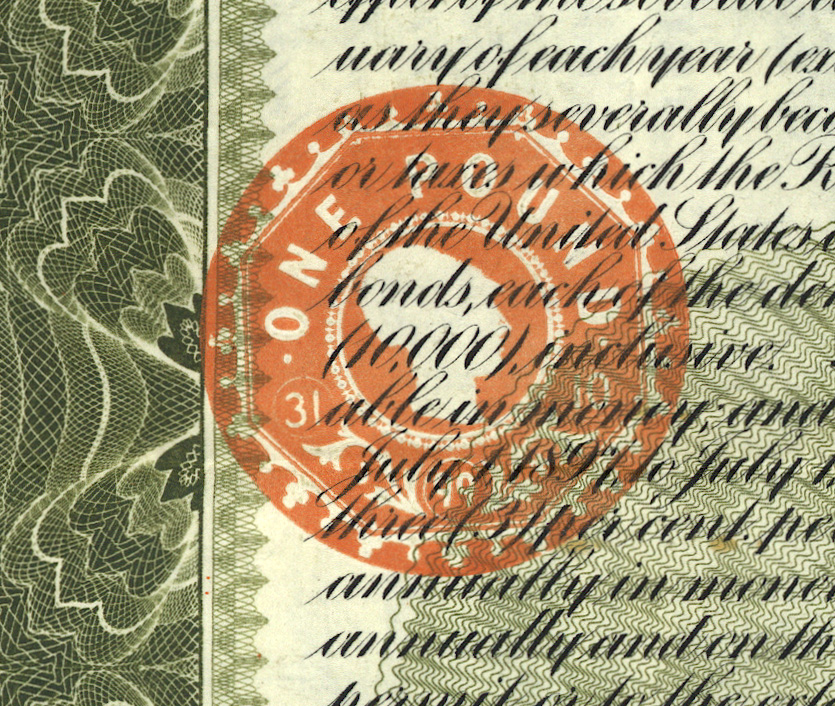 of the several
uary of each year (ex
as they severally bec
or taxes which the R
of the United States
bonds, each of the de
(10,000), inclusive.
able in money; and
July 1 1897, to July 1
three (3) per cent. pe
annually in mone
annually and on th
permit or to the
ONE POUND
31